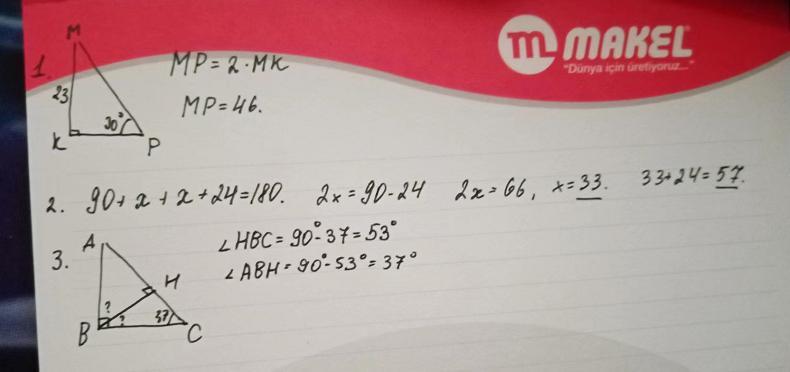 MAKEL
"Dünya için üretiyoruz..."
1.
M
23
K
30°
P
MP = 2 · MK
MP = 46.
2. 90 + x + x + 24 = 180. 2x = 90 - 24 2x = 66, x = 33. 33 + 24 = 57.
3.
A
H
B
?
?
37
C
∠HBC = 90° - 37 = 53°
∠ABH = 90° - 53° = 37°